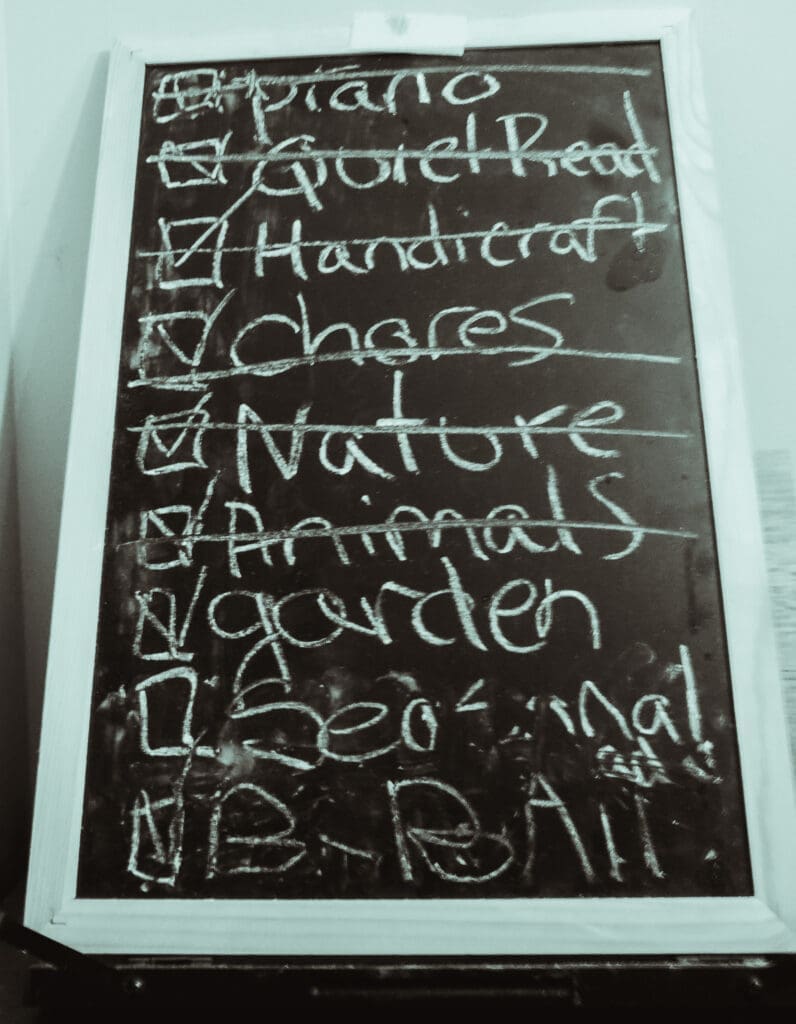 piano
Quiet Read
Handicraft
Chores
Nature
Animals
garden
B-BAll